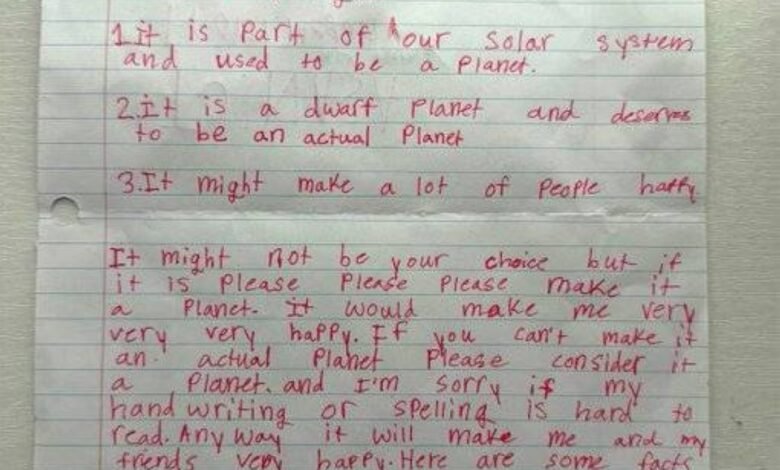 1. it is part of our solar system
and used to be a planet.
2. it is a dwarf planet and deserves
to be an actual planet
3. It might make a lot of people happy
It might not be your choice but if
it is please please please make it
a planet. it would make me very
very very happy. If you can't make it
an actual planet please consider it
a planet. and I'm sorry if my
hand writing or spelling is hard to
read. Any way it will make me and my
friends very happy. Here are some facts